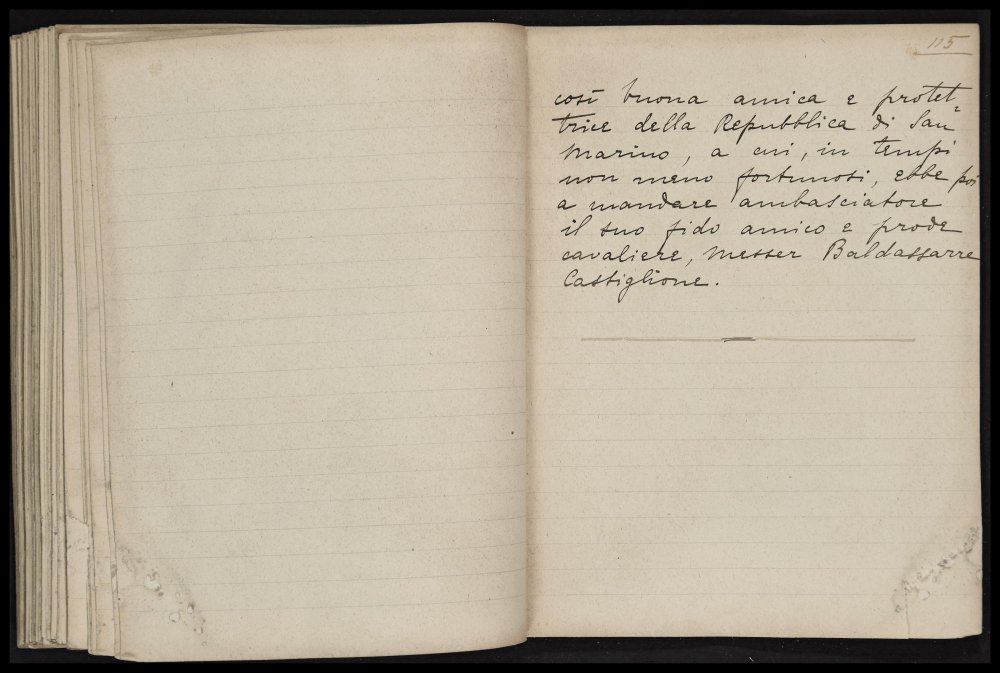 115
così buona amica e protet=
trice della Repubblica di San
Marino, a cui, in tempi
non meno fortunosi, ebbe poi
a mandare ambasciatore
il suo fido amico e prode
cavaliere, messer Baldassarre
Castiglione.